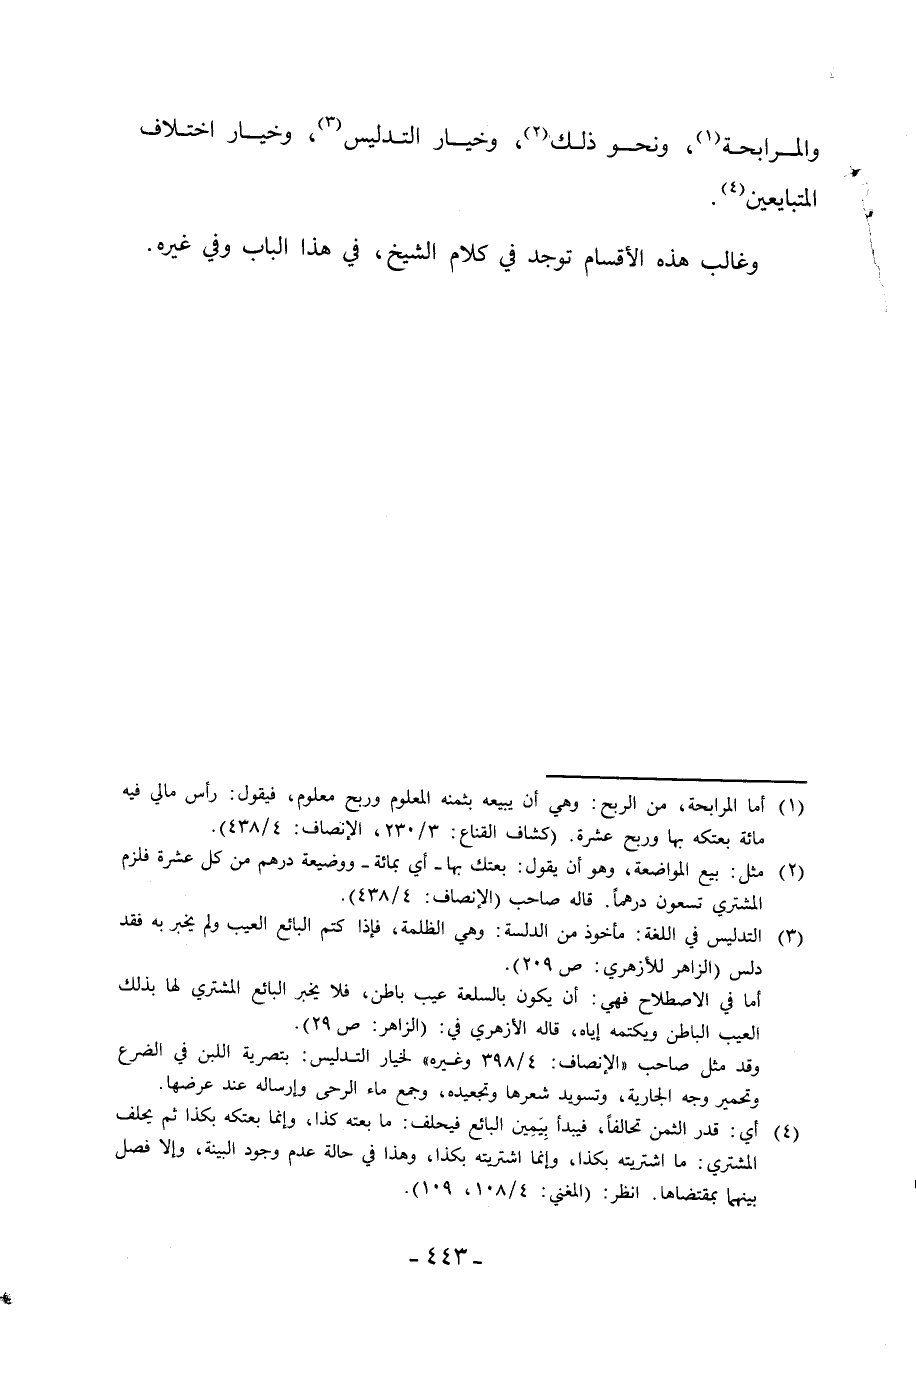 والمــرابحـة(١)، ونحــو ذلـك(٢)، وخيــار التـدليس(٣)، وخيــار اختـلاف
المتبايعين(٤).
وغالب هذه الأقسام توجد في كلام الشيخ، في هذا الباب وفي غيره.
(١) أما المرابحة، من الربح: وهي أن يبيعه بثمنه المعلوم وربح معلوم، فيقول: رأس مالي فيه
مائة بعتكه بها وربح عشرة. (كشاف القناع: ٢٣٠/٣، الإنصاف: ٤٣٨/٤).
(٢) مثل: بيع المواضعة، وهو أن يقول: بعتك بها ـ أي بمائة ـ ووضيعة درهم من كل عشرة فلزم
المشتري تسعون درهماً. قاله صاحب (الإنصاف: ٤٣٨/٤).
(٣) التدليس في اللغة: مأخوذ من الدلسة: وهي الظلمة، فإذا كتم البائع العيب ولم يخبر به فقد
دلس (الزاهر للأزهري: ص ٢٠٩).
أما في الاصطلاح فهي: أن يكون بالسلعة عيب باطن، فلا يخبر البائع المشتري لها بذلك
العيب الباطن ويكتمه إياه، قاله الأزهري في: (الزاهر: ص ٢٩).
وقد مثل صاحب «الإنصاف: ٣٩٨/٤ وغيره» لخيار التدليس: بتصرية اللبن في الضرع
وتحمير وجه الجارية، وتسويد شعرها وتجعيده، وجمع ماء الرحى وإرساله عند عرضها.
(٤) أي: قدر الثمن تحالفاً، فيبدأ بِيَمِين البائع فيحلف: ما بعته كذا، وإنما بعتكه بكذا ثم يحلف
المشتري: ما اشتريته بكذا، وإنما اشتريته بكذا، وهذا في حالة عدم وجود البينة، وإلا فصل
بينهما بمقتضاها. انظر: (المغني: ١٠٨/٤، ١٠٩).
- ٤٤٣ -